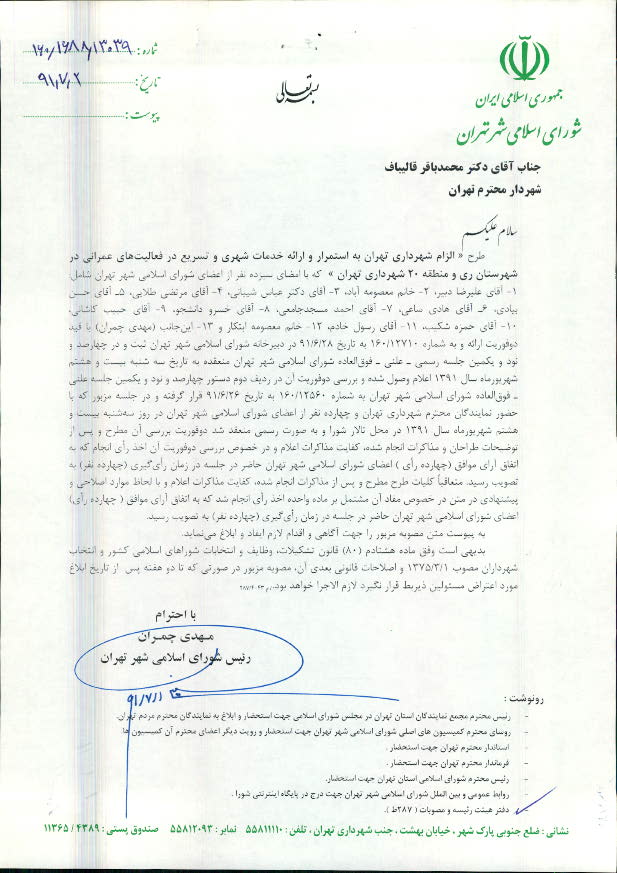 شماره : ۱۶۰/۱۶۸۸/۱۳۰۳۹
تاریخ : ۹۱/۷/۲
پیوست :
بسمه تعالی
جمهوری اسلامی ایران
شورای اسلامی شهر تهران
جناب آقای دکتر محمدباقر قالیباف
شهردار محترم تهران
سلام علیکم
طرح « الزام شهرداری تهران به استمرار و ارائه خدمات شهری و تسریع در فعالیت‌های عمرانی در
شهرستان ری و منطقه ۲۰ شهرداری تهران » که با امضای سیزده نفر از اعضای شورای اسلامی شهر تهران شامل:
۱- آقای علیرضا دبیر، ۲- خانم معصومه آباد، ۳- آقای دکتر عباس شیبانی، ۴- آقای مرتضی طلایی، ۵ـ آقای حسن
بیادی، ۶ـ آقای هادی ساعی، ۷- آقای احمد مسجدجامعی، ۸- آقای خسرو دانشجو، ۹- آقای حبیب کاشانی،
۱۰- آقای حمزه شکیب، ۱۱- آقای رسول خادم، ۱۲- خانم معصومه ابتکار و ۱۳- این‌جانب (مهدی چمران) با قید
دوفوریت ارائه و به شماره ۱۶۰/۱۲۷۱۰ به تاریخ ۹۱/۶/۲۸ در دبیرخانه شورای اسلامی شهر تهران ثبت و در چهارصد و
نود و یکمین جلسه رسمی ـ علنی ـ فوق‌العاده شورای اسلامی شهر تهران منعقده به تاریخ سه شنبه بیست و هشتم
شهریورماه سال ۱۳۹۱ اعلام وصول شده و بررسی دوفوریت آن در ردیف دوم دستور چهارصد و نود و یکمین جلسه علنی
ـ فوق‌العاده شورای اسلامی شهر تهران به شماره ۱۶۰/۱۲۵۶۰ به تاریخ ۹۱/۶/۲۶ قرار گرفته و در جلسه مزبور که با
حضور نمایندگان محترم شهرداری تهران و چهارده نفر از اعضای شورای اسلامی شهر تهران در روز سه‌شنبه بیست و
هشتم شهریورماه سال ۱۳۹۱ در محل تالار شورا و به صورت رسمی منعقد شد دوفوریت بررسی آن مطرح و پس از
توضیحات طراحان و مذاکرات انجام شده، کفایت مذاکرات اعلام و در خصوص بررسی دوفوریت آن اخذ رأی انجام که به
اتفاق آرای موافق (چهارده رأی ) اعضای شورای اسلامی شهر تهران حاضر در جلسه در زمان رأی‌گیری (چهارده نفر) به
تصویب رسید. متعاقباً کلیات طرح مطرح و پس از مذاکرات انجام شده، کفایت مذاکرات اعلام و با لحاظ موارد اصلاحی و
پیشنهادی در متن در خصوص مفاد آن مشتمل بر ماده واحده اخذ رأی انجام شد که به اتفاق آرای موافق ( چهارده رأی)
اعضای شورای اسلامی شهر تهران حاضر در جلسه در زمان رأی‌گیری (چهارده نفر) به تصویب رسید.
به پیوست متن مصوبه مزبور را جهت آگاهی و اقدام لازم ایفاد و ابلاغ می‌نماید.
بدیهی است وفق ماده هشتادم (۸۰) قانون تشکیلات، وظایف و انتخابات شوراهای اسلامی کشور و انتخاب
شهرداران مصوب ۱۳۷۵/۳/۱ و اصلاحات قانونی بعدی آن، مصوبه مزبور در صورتی که تا دو هفته پس از تاریخ ابلاغ
مورد اعتراض مسئولین ذیربط قرار نگیرد لازم الاجرا خواهد بود.
با احترام
مهدی چمران
رئیس شورای اسلامی شهر تهران
رونوشت :
- رئیس محترم مجمع نمایندگان استان تهران در مجلس شورای اسلامی جهت استحضار و ابلاغ به نمایندگان محترم مردم تهران.
- روسای محترم کمیسیون های اصلی شورای اسلامی شهر تهران جهت استحضار و رویت دیگر اعضای محترم آن کمیسیون ها.
- استاندار محترم تهران جهت استحضار .
- فرماندار محترم تهران جهت استحضار .
- رئیس محترم شورای اسلامی استان تهران جهت استحضار.
- روابط عمومی و بین الملل شورای اسلامی شهر تهران جهت درج در پایگاه اینترنتی شورا .
- دفتر هیئت رئیسه و مصوبات ( ۲۸۷ط ).
نشانی : ضلع جنوبی پارک شهر ، خیابان بهشت ، جنب شهرداری تهران ، تلفن : ۵۵۸۱۱۱۱۰ نمابر : ۵۵۸۱۲۰۹۳ صندوق پستی : ۴۳۸۹ / ۱۱۳۶۵